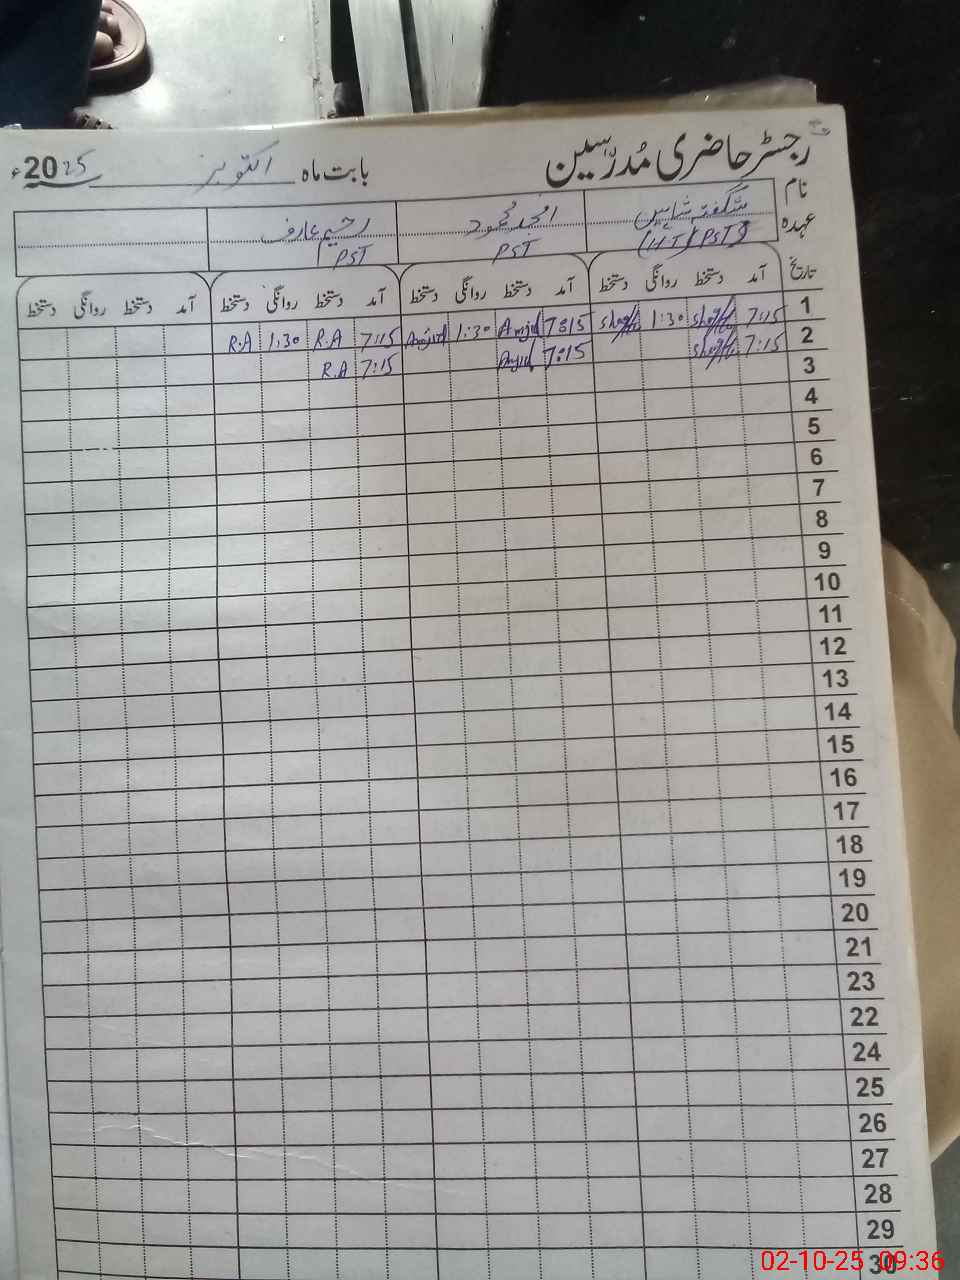 رجسٹر حاضری مُدرّسین بابت ماہ اکتوبر 2025ء
نام شگفتہ شاہین امجد محمود رحیم عارف
عہدہ (H-T)(PST) PST PST
تاریخ آمد دستخط روانگی دستخط آمد دستخط روانگی دستخط آمد دستخط روانگی دستخط آمد دستخط روانگی دستخط
1 7:15 1:30 7:15 Amjid 1:30 Amjid 7:15 R.A 1:30 R.A
2 7:15 7:15 Amjid 7:15 R.A
3
4
5
6
7
8
9
10
11
12
13
14
15
16
17
18
19
20
21
23
22
24
25
26
27
28
29
30
02-10-25 09:36